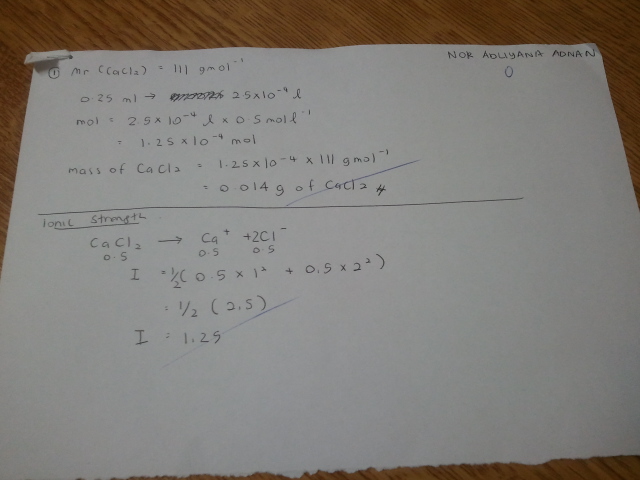 NOR ADLIYANA ADNAN
0
① Mr (CaCl2) = 111 gmol⁻¹
0.25 ml → 2.5x10⁻⁴ l
mol = 2.5 x 10⁻⁴ l x 0.5 mol l⁻¹
= 1.25 x 10⁻⁴ mol
mass of CaCl2 = 1.25x10-4 x 111 gmol⁻¹
= 0.014 g of CaCl2
Ionic Strength
CaCl2 → Ca⁺ + 2Cl⁻
0.5 0.5 0.5
I = ½( 0.5 x 1² + 0.5 x 2² )
= 1/2 ( 2.5 )
I = 1.25